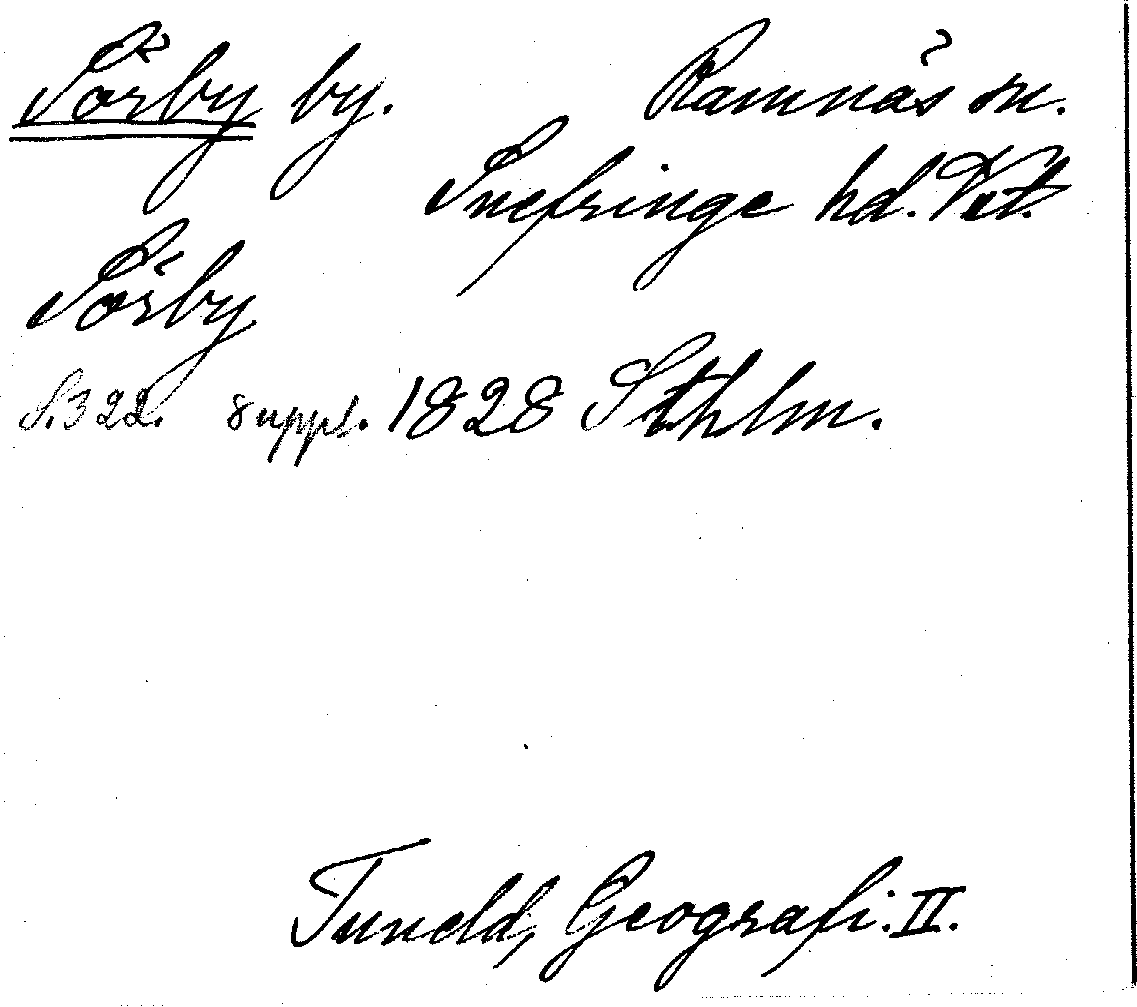 Sörby by. Ramnäs sn.
Snefringe hd. Vstm.
Sörby
S. 322. suppl. 1828 Sthlm.
Tuneld, Geografi. II.